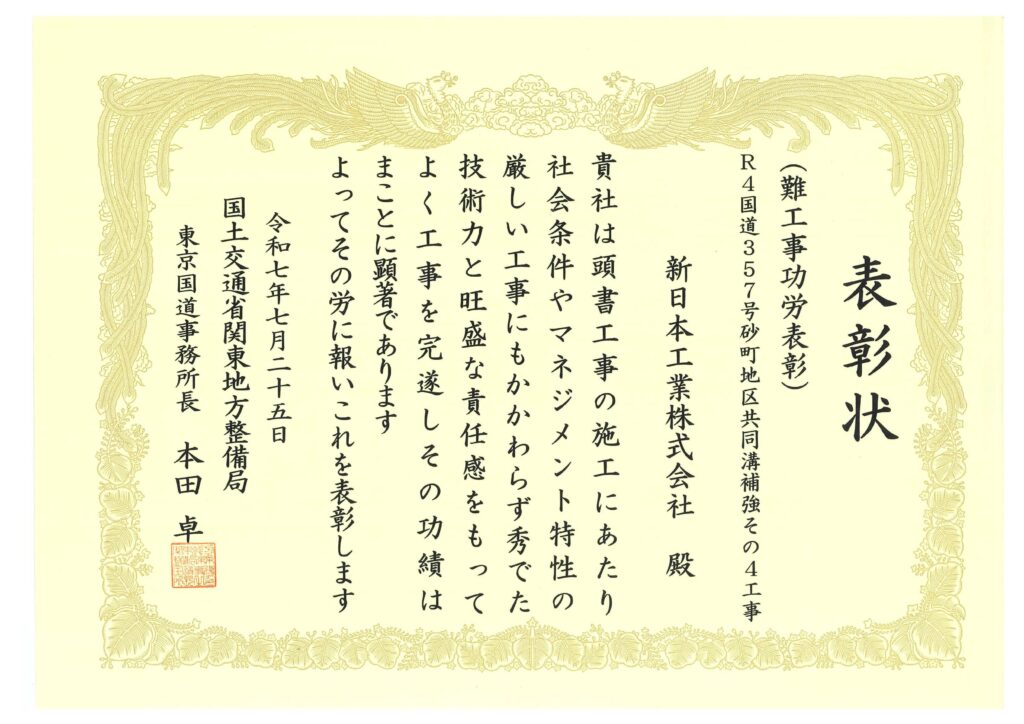 表彰状
（難工事功労表彰）
R４国道３５７号砂町地区共同溝補強その４工事
新日本工業株式会社　殿
貴社は頭書工事の施工にあたり
社会条件やマネジメント特性の
厳しい工事にもかかわらず秀でた
技術力と旺盛な責任感をもって
よく工事を完遂しその功績は
まことに顕著であります
よってその労に報いこれを表彰します
令和七年七月二十五日
国土交通省関東地方整備局
東京国道事務所長　本田　卓